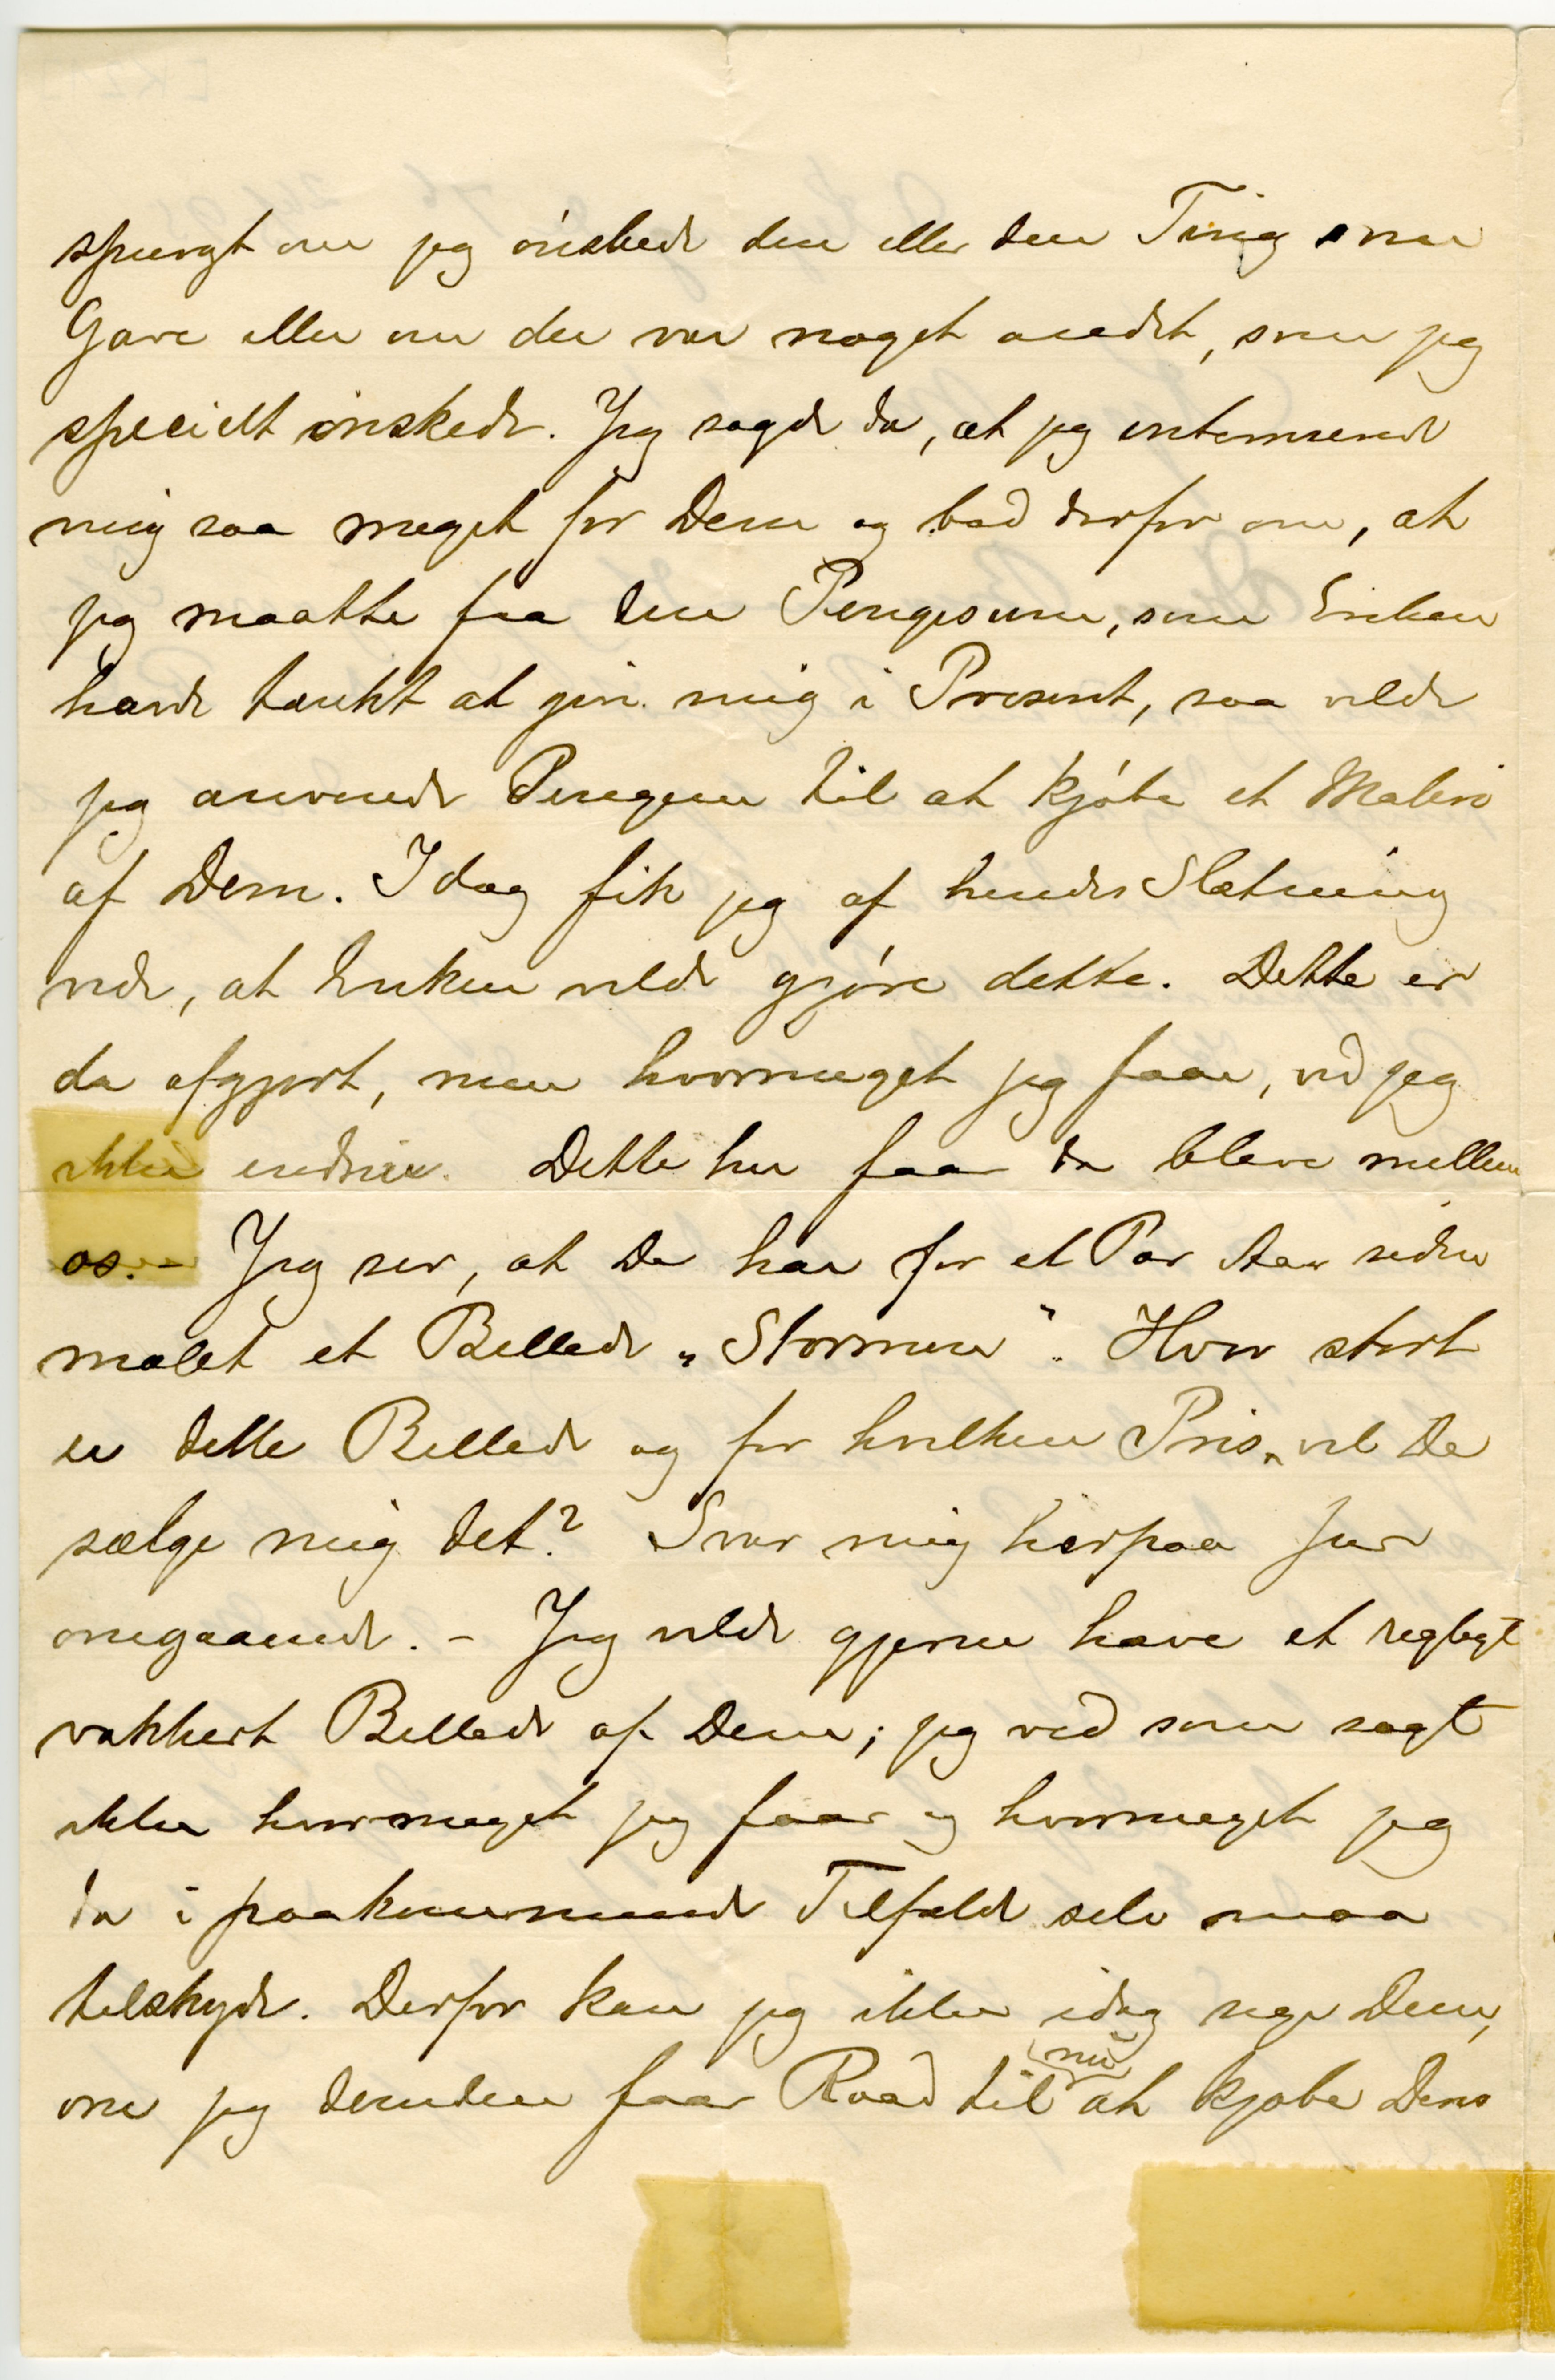 spurgt om jeg ønskede den eller den Ting som
Gave eller om der var noget andet, som jeg
specielt ønskede. Jeg sagde da, at jeg interesserede
mig saa meget for Dem og bad derfor om, at
jeg maatte faa den Pengesum, som Enken
havde tænkt at give mig i Present, saa vilde
jeg anvende Pengene til at kjøbe et Maleri
af Dem. Idag fik jeg af hendes Slætning
vide, at Enken vilde gjøre dette. Dette er
da afgjort, men hvormeget jeg faar, ved jeg
ikke endnu. Dette her faar da bleve mellem
os. – Jeg ser, at De har for et Par Aar siden
malet et Billede „Stormen". Hvor stort
er dette Billede og for hvilken Pris vil De
sælge mig det? Svar mig herpaa per
omgaaende. – Jeg vilde gjerne have et regtigt
vakkert Billede af Dem; jeg ved som sagt
ikke hvormeget jeg faar og hvormeget jeg
da i paakommende Tilfælde selv maa
tilskyde. Derfor kan jeg ikke idag sige Dem,
om jeg desuden faar Raad til nu at kjøbe Deres